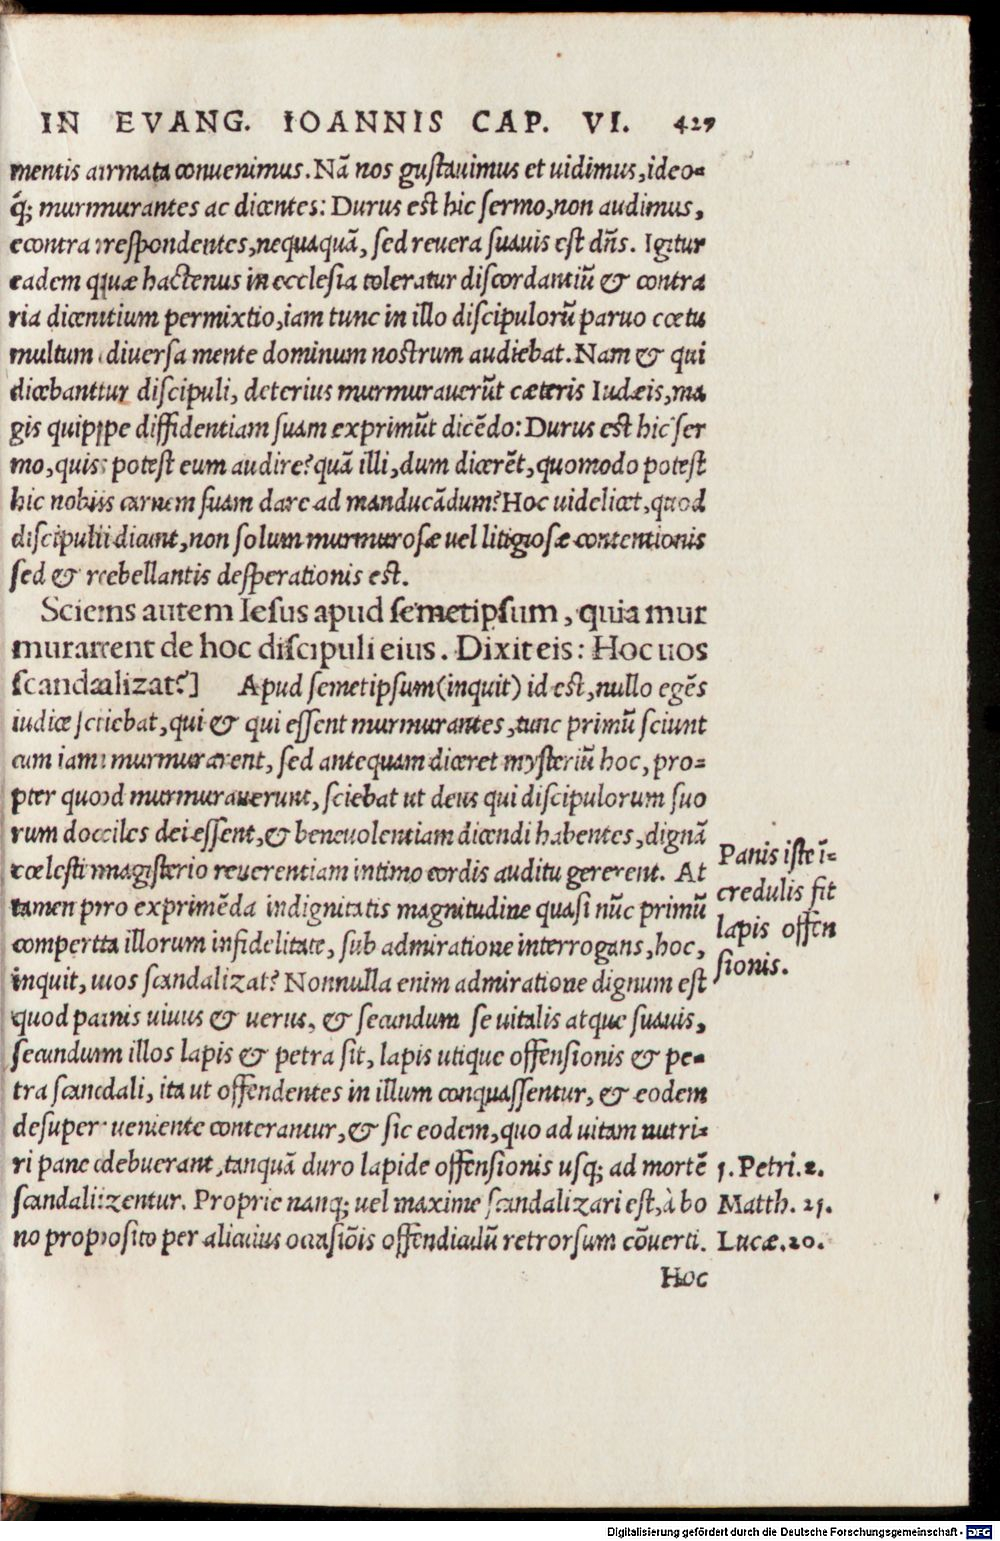 IN EVANG. IOANNIS CAP. VI. 427
mentis armata conuenimus. Nã nos gustauimus et uidimus, ideo-
q́; murmurantes ac dicentes: Durus est hic sermo, non audimus,
econtra respondentes, nequaquã, sed reuera suauis est dñs. Igitur
eadem quæ hactenus in ecclesia toleratur discordantiũ & contra
ria dicentium permixtio, iam tunc in illo discipulorũ paruo cœtu
multum diuersa mente dominum nostrum audiebat. Nam & qui
dicebantur discipuli, deterius murmurauerũt cæteris Iudæis, ma
gis quippe diffidentiam suam exprimũt dicẽdo: Durus est hic ser
mo, quis potest eum audire? quã illi, dum dicerẽt, quomodo potest
hic nobis carnem suam dare ad manducãdum? Hoc uidelicet, quod
discipuli diaunt, non solum murmurosæ uel litigiosæ contentionis
sed & rebellantis desperationis est.
Sciens autem Iesus apud semetipsum, quia mur
murarent de hoc discipuli eius. Dixit eis: Hoc uos
scandalizat?] Apud semetipsum (inquit) id est, nullo egẽs
iudice sciebat, qui & qui essent murmurantes, tunc primũ sciunt
cum iam murmurarent, sed antequam diceret mysteriũ hoc, pro-
pter quod murmurauerunt, sciebat ut deus qui discipulorum suo
rum dociles dei essent, & beneuolentiam dicendi habentes, dignã
cœlesti magisterio reuerentiam intimo cordis auditu gererent. At
tamen pro exprimẽda indignitatis magnitudine quasi nũc primũ
comperta illorum infidelitate, sub admiratione interrogans, hoc,
inquit, uos scandalizat? Nonnulla enim admiratione dignum est
quod panis uiuus & uerus, & secundum se uitalis atque suauis,
secundum illos lapis & petra sit, lapis utique offensionis & pe-
tra scandali, ita ut offendentes in illum conquassentur, & eodem
desuper ueniente conterantur, & sic eodem, quo ad uitam nutri-
ri pane debuerant, tanquã duro lapide offensionis usq; ad mortẽ
scandalizentur. Proprie nanq; uel maxime scandalizari est, à bo
no proposito per alicuius occasiõis offendiculũ retrorsum cõuerti.
Hoc
Panis iste ĩ-
credulis fit
lapis offen
sionis.
1. Petri. 2.
Matth. 21.
Lucæ. 20.
Digitalisierung gefördert durch die Deutsche Forschungsgemeinschaft - DFG